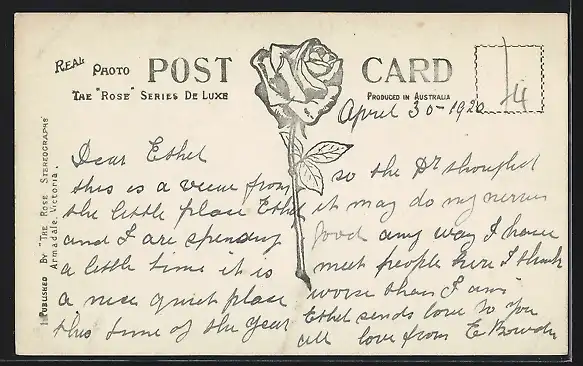 REAL PHOTO POST CARD
THE "ROSE" SERIES DE LUXE
PRODUCED IN AUSTRALIA
PUBLISHED BY THE ROSE STEREOGRAPHS
Armadale, Victoria.
April 30 - 1920
Dear Ethel
this is a view from
the little place Ethel
and I are spending
a little time it is
a nice quiet place
this time of the year
so the Dr thought
it may do my nerves
good any way I have
meet people here I think
worse than I am
Ethel sends love to you
all love from E Bowden